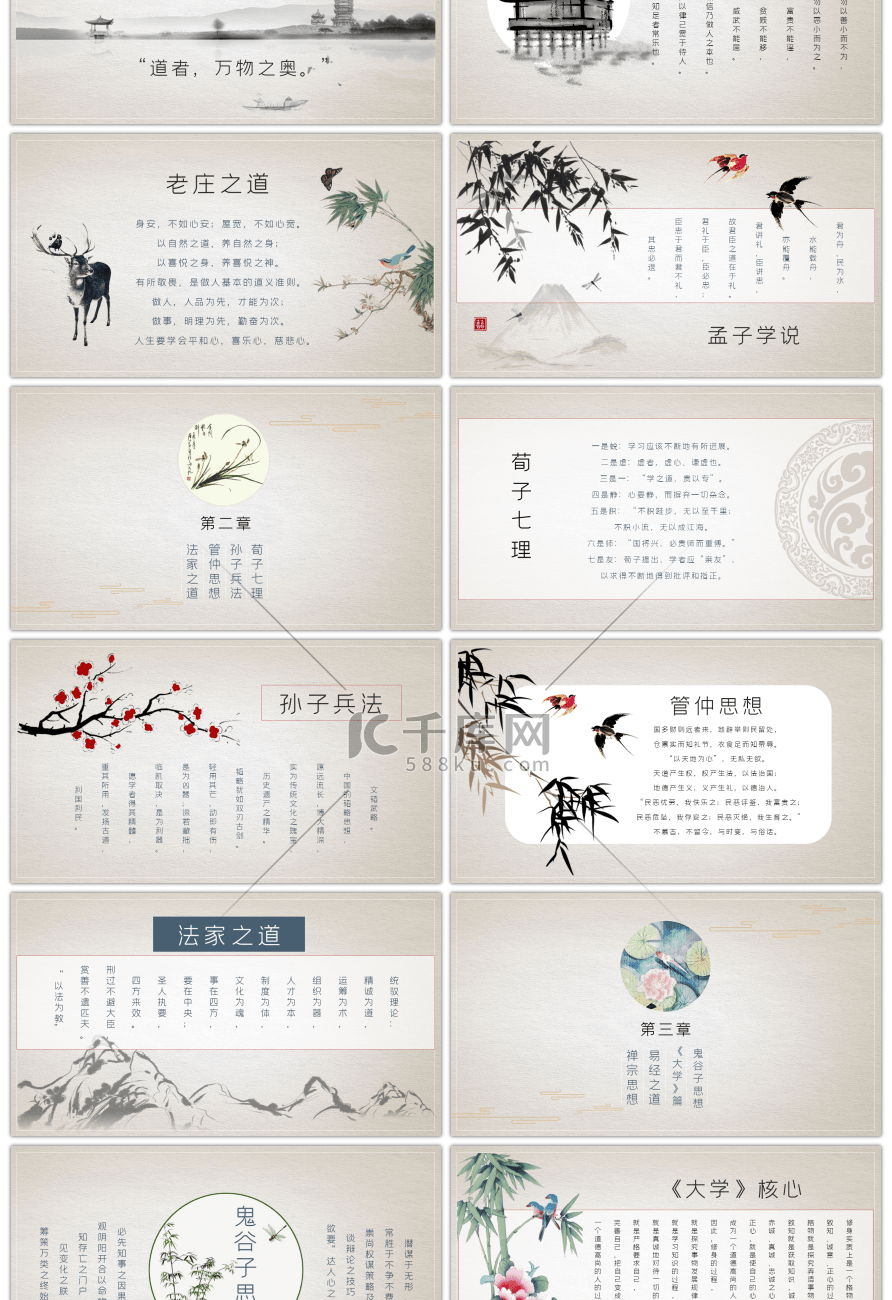 “道者，万物之奥。”
勿以善小而不为，
勿以恶小而为之。
富贵不能淫，
贫贱不能移，
威武不能屈。
信乃做人之本也
以律己宽于待人。
知足者常乐也。
老庄之道
身安，不如心安；屋宽，不如心宽。
以自然之道，养自然之身；
以喜悦之身，养喜悦之神。
有所敬畏，是做人基本的道义准则。
做人，人品为先，才能为次；
做事，明理为先，勤奋为次。
人生要学会平和心，喜乐心，慈悲心。
君为舟，民为水，
水能载舟，
亦能覆舟。
君讲礼，臣讲忠，
故君臣之道在于礼。
君礼于臣，臣必忠；
臣忠于君而君不礼，
其忠必退。
孟子学说
第二章
荀子七理
孙子兵法
管仲思想
法家之道
荀子七理
一是蜕：学习应该不断地有所进展。
二是虚：虚者，虚心，谦虚也。
三是一：“学之道，贵以专”。
四是静：心要静，而摒弃一切杂念。
五是积：“不积跬步，无以至千里；
不积小流，无以成江海。
六是师：“国将兴，必贵师而重傅。”
七是友：荀子提出，学者应“亲友”，
以求得不断地得到批评和指正。
孙子兵法
文韬武略。
中国的韬略思想，
源远流长，博大精深，
实为传统文化之瑰宝，
历史遗产之精华。
韬略就如双刃古剑。
轻用其芒，动即有伤，
是为凶器；深若藏拙，
临机取决，是为利器。
愿学者得其精髓，
重其所用，发扬古道，
利国利民。
管仲思想
国多财则远者来，地辟举则民留处，
仓禀实而知礼节，衣食足而知荣辱。
“以天地为心”，无私无欲。
天道产生权，权产生法，以法治国；
地德产生义，义产生礼，以德治人。
“民恶忧劳，我佚乐之；民恶评鉴，我富贵之；
民恶危坠，我存安之；民恶灭绝，我生育之。”
不慕古，不留今，与时变，与俗化。
千库网
588ku.com
法家之道
统驭理论：
精诚为道，
运筹为术，
组织为器，
人才为本，
制度为体，
文化为魂，
事在四方，
要在中央；
圣人执要，
四方来效。
刑过不避大臣，
赏善不遗匹夫。
“以法为教”
第三章
鬼谷子思想
《大学》篇
易经之道
禅宗思想
鬼谷子思
潜谋于无形
常胜于不争不费
崇尚权谋策略及
谈辩论之技巧
欲要”达人心之
必先知事之因果
观阴阳开合以命物
知存亡之门户
见变化之朕
筹策万类之终始
《大学》核心
修身实质上是一个格物
致知、诚意、正心的过
格物就是探究弄清事物
致知就是获取知识，诚
赤诚、真诚、忠诚之心
正心，就是使自己的心
成为一个道德高尚的人
因此，修身的过程，
就是探究事物发展规律
就是学习知识的过程，
就是真诚地对待一切的
就是严格要求自己，
完善自己，把自己变成
一个道德高尚的人的过